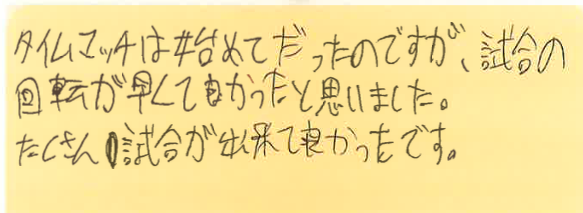 タイムマッチは始めてだったのですが、試合の
回転が早くて良かったと思いました。
たくさん試合が出来て良かったです。